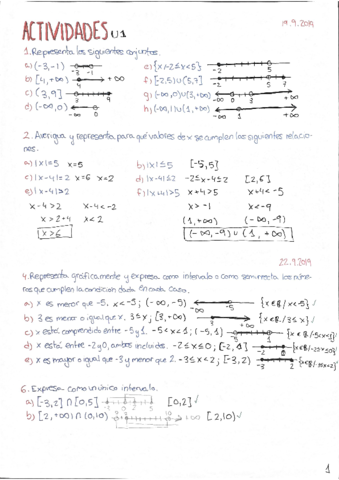 ACTIVIDADES U1
19.9.2019
1. Representa los siguientes conjuntos.
a) (-3,-1) -3 -1
e) {x/-2≤x<5} -2 5
b) [4,+∞) 4 +∞
f) [-2,5)∪(5,7] -2 5 7
c) (3,9] 3 9
g) (-∞,0)∪(3,+∞) -∞ 0 3 +∞
d) (-∞,0) -∞ 0
h) (-∞,1)∪(1,+∞) -∞ 1 +∞
2. Averigua y representa para qué valores de x se cumplen las siguientes relacio-
nes.
a) |x|=5 x=5
b) |x|≤5 [-5,5]
c) |x-4|=2 x=6 x=2
d) |x-4|≤2 -2≤x-4≤2 [2,6]
e) |x-4|>2
f) |x+4|>5 x+4>5 x+4<-5
x-4>2 x-4<-2
x>-1 x<-9
x>2+4 x<2
(1,+∞) (-∞,-9)
x>6
(-∞,-9)∪(1,+∞)
22.9.2019
4. Representa gráficamente y expresa como intervalo o como semirrecta los núme-
ros que cumplen la condición dada en cada caso.
a) x es menor que -5. x<-5; (-∞,-5) -5 {x∈ℝ/x<-5}✓
b) 3 es menor o igual que x. 3≤x; [3,+∞) 3 {x∈ℝ/3≤x}✓
c) x está comprendido entre -5 y 1. -5<x<1; (-5,1) -5 1 {x∈ℝ/-5<x<1}✓
d) x está entre -2 y 0, ambos incluidos. -2≤x≤0; [-2,0] -2 0 {x∈ℝ/-2≤x≤0}✓
e) x es mayor o igual que -3 y menor que 2. -3≤x<2; [-3,2) -3 2 {x∈ℝ/-3≤x<2}✓
6. Expresa como un único intervalo.
a) [-3,2]∩[0,5] -3 0 2 5 [0,2]✓
b) [2,+∞)∩(0,10) 0 2 10 +∞ [2,10)✓
1